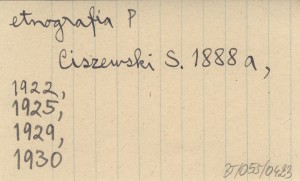 etnografia P
Ciszewski S. 1888a,
1922,
1925,
1929,
1930